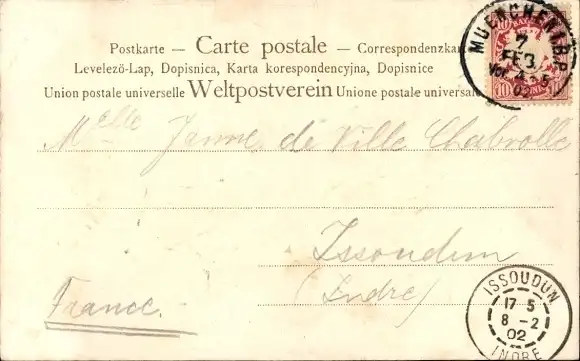 Postkarte — Carte postale — Correspondenzkarte
Levelező-Lap, Dopisnica, Karta korespondencyjna, Dopisnice
Union postale universelle Weltpostverein Unione postale universale
MUENCHEN I.B.P.
7
FEB
Vor. 4-5
02
BAYERN
10 10
Melle Janne de Ville Chabrolle
Issoudun
(Indre)
France.
ISSOUDUN
17 5
8 -2
02
INDRE